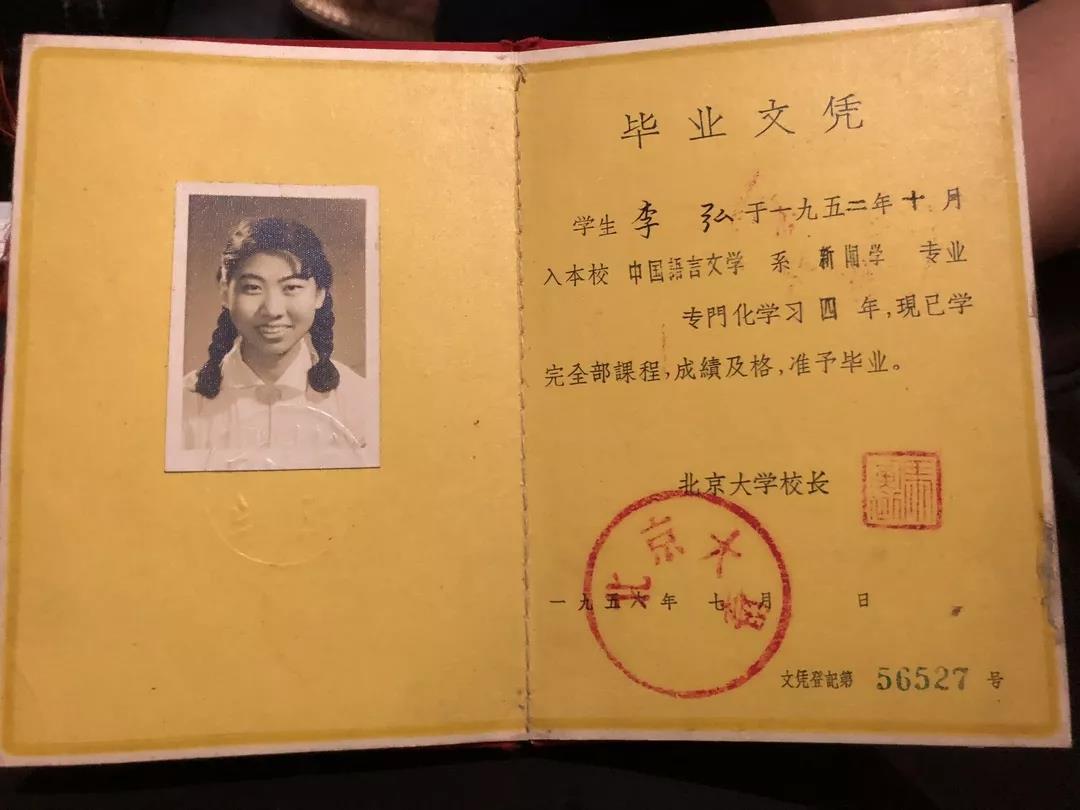 毕业文凭
学生 李 弘 于一九五二年十月
入本校 中国語言文学 系 新闻学 专业
专門化学习 四 年,現已学
完全部課程,成績及格,准予毕业。
北京大学校长
北京大学
一九五六年 七月 日
文凭登記第 56527 号